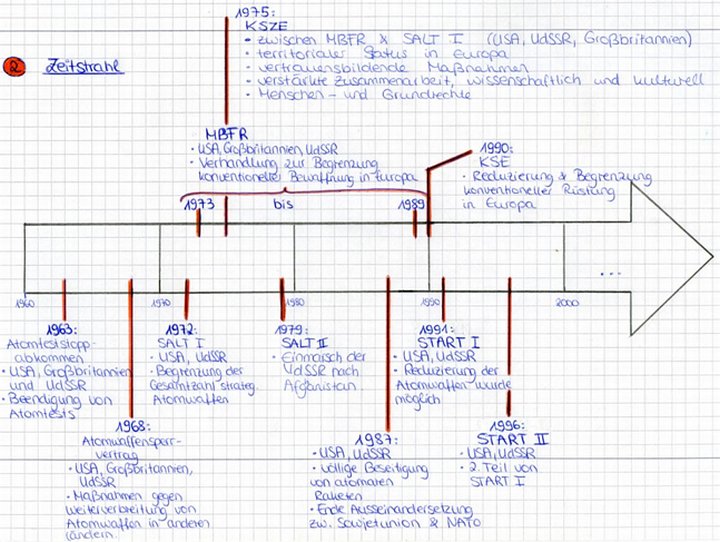 ② Zeitstrahl
1975:
KSZE
• zwischen MBFR & SALT I (USA, UdSSR, Großbritannien)
• territorialer Status in Europa
• vertrauensbildende Maßnahmen
• verstärkte Zusammenarbeit, wissenschaftlich und kulturell
• Menschen- und Grundrechte
MBFR
• USA, Großbritannien, UdSSR
• Verhandlung zur Begrenzung
konventioneller Bewaffnung in Europa
1990:
KSE
• Reduzierung & Begrenzung
konventioneller Rüstung
in Europa
1973 bis 1989
1960 1970 1980 1990 2000 ...
1963:
Atomteststopp-
abkommen
• USA, Großbritannien
und UdSSR
• Beendigung von
Atomtests
1968:
Atomwaffensperr-
vertrag
• USA, Großbritannien,
UdSSR
• Maßnahmen gegen
weiterverbreitung von
Atomwaffen in anderen
Ländern.
1972:
SALT I
• USA, UdSSR
• Begrenzung der
Gesamtzahl strateg.
Atomwaffen
1979:
SALT II
• Einmarsch der
UdSSR nach
Afghanistan.
1987:
• USA, UdSSR
• völlige Beseitigung
von atomaren
Raketen
• Ende Ausseinandersetzung
zw. Sowjetunion & NATO
1991:
START I
• USA, UdSSR
• Reduzierung der
Atomwaffen wurde
möglich
1996:
START II
• USA, UdSSR
• 2. Teil von
START I